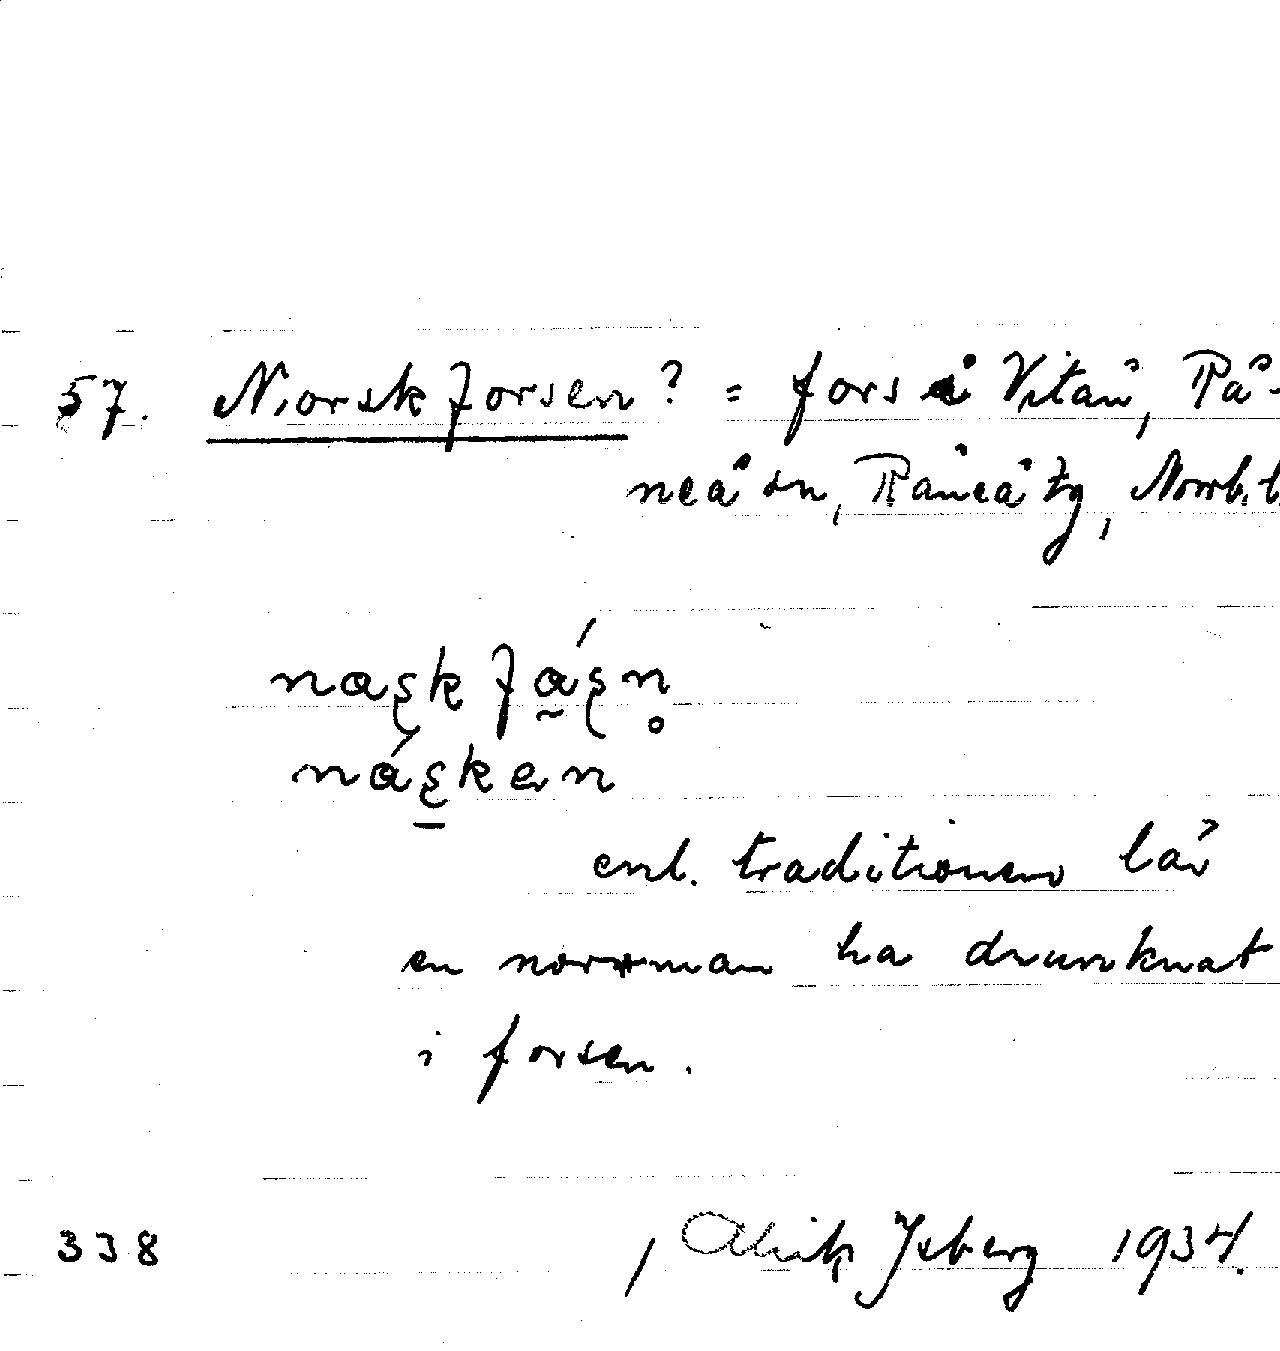 57. Norskforsen? = fors i Vitån, Rå-
neå sn, Råneå tg, Norrb. l.
naʂkfáʂn̥
náʂken
enl. traditionen lär
en norrman ha drunknat
i forsen.
338 / Isberg 1934.